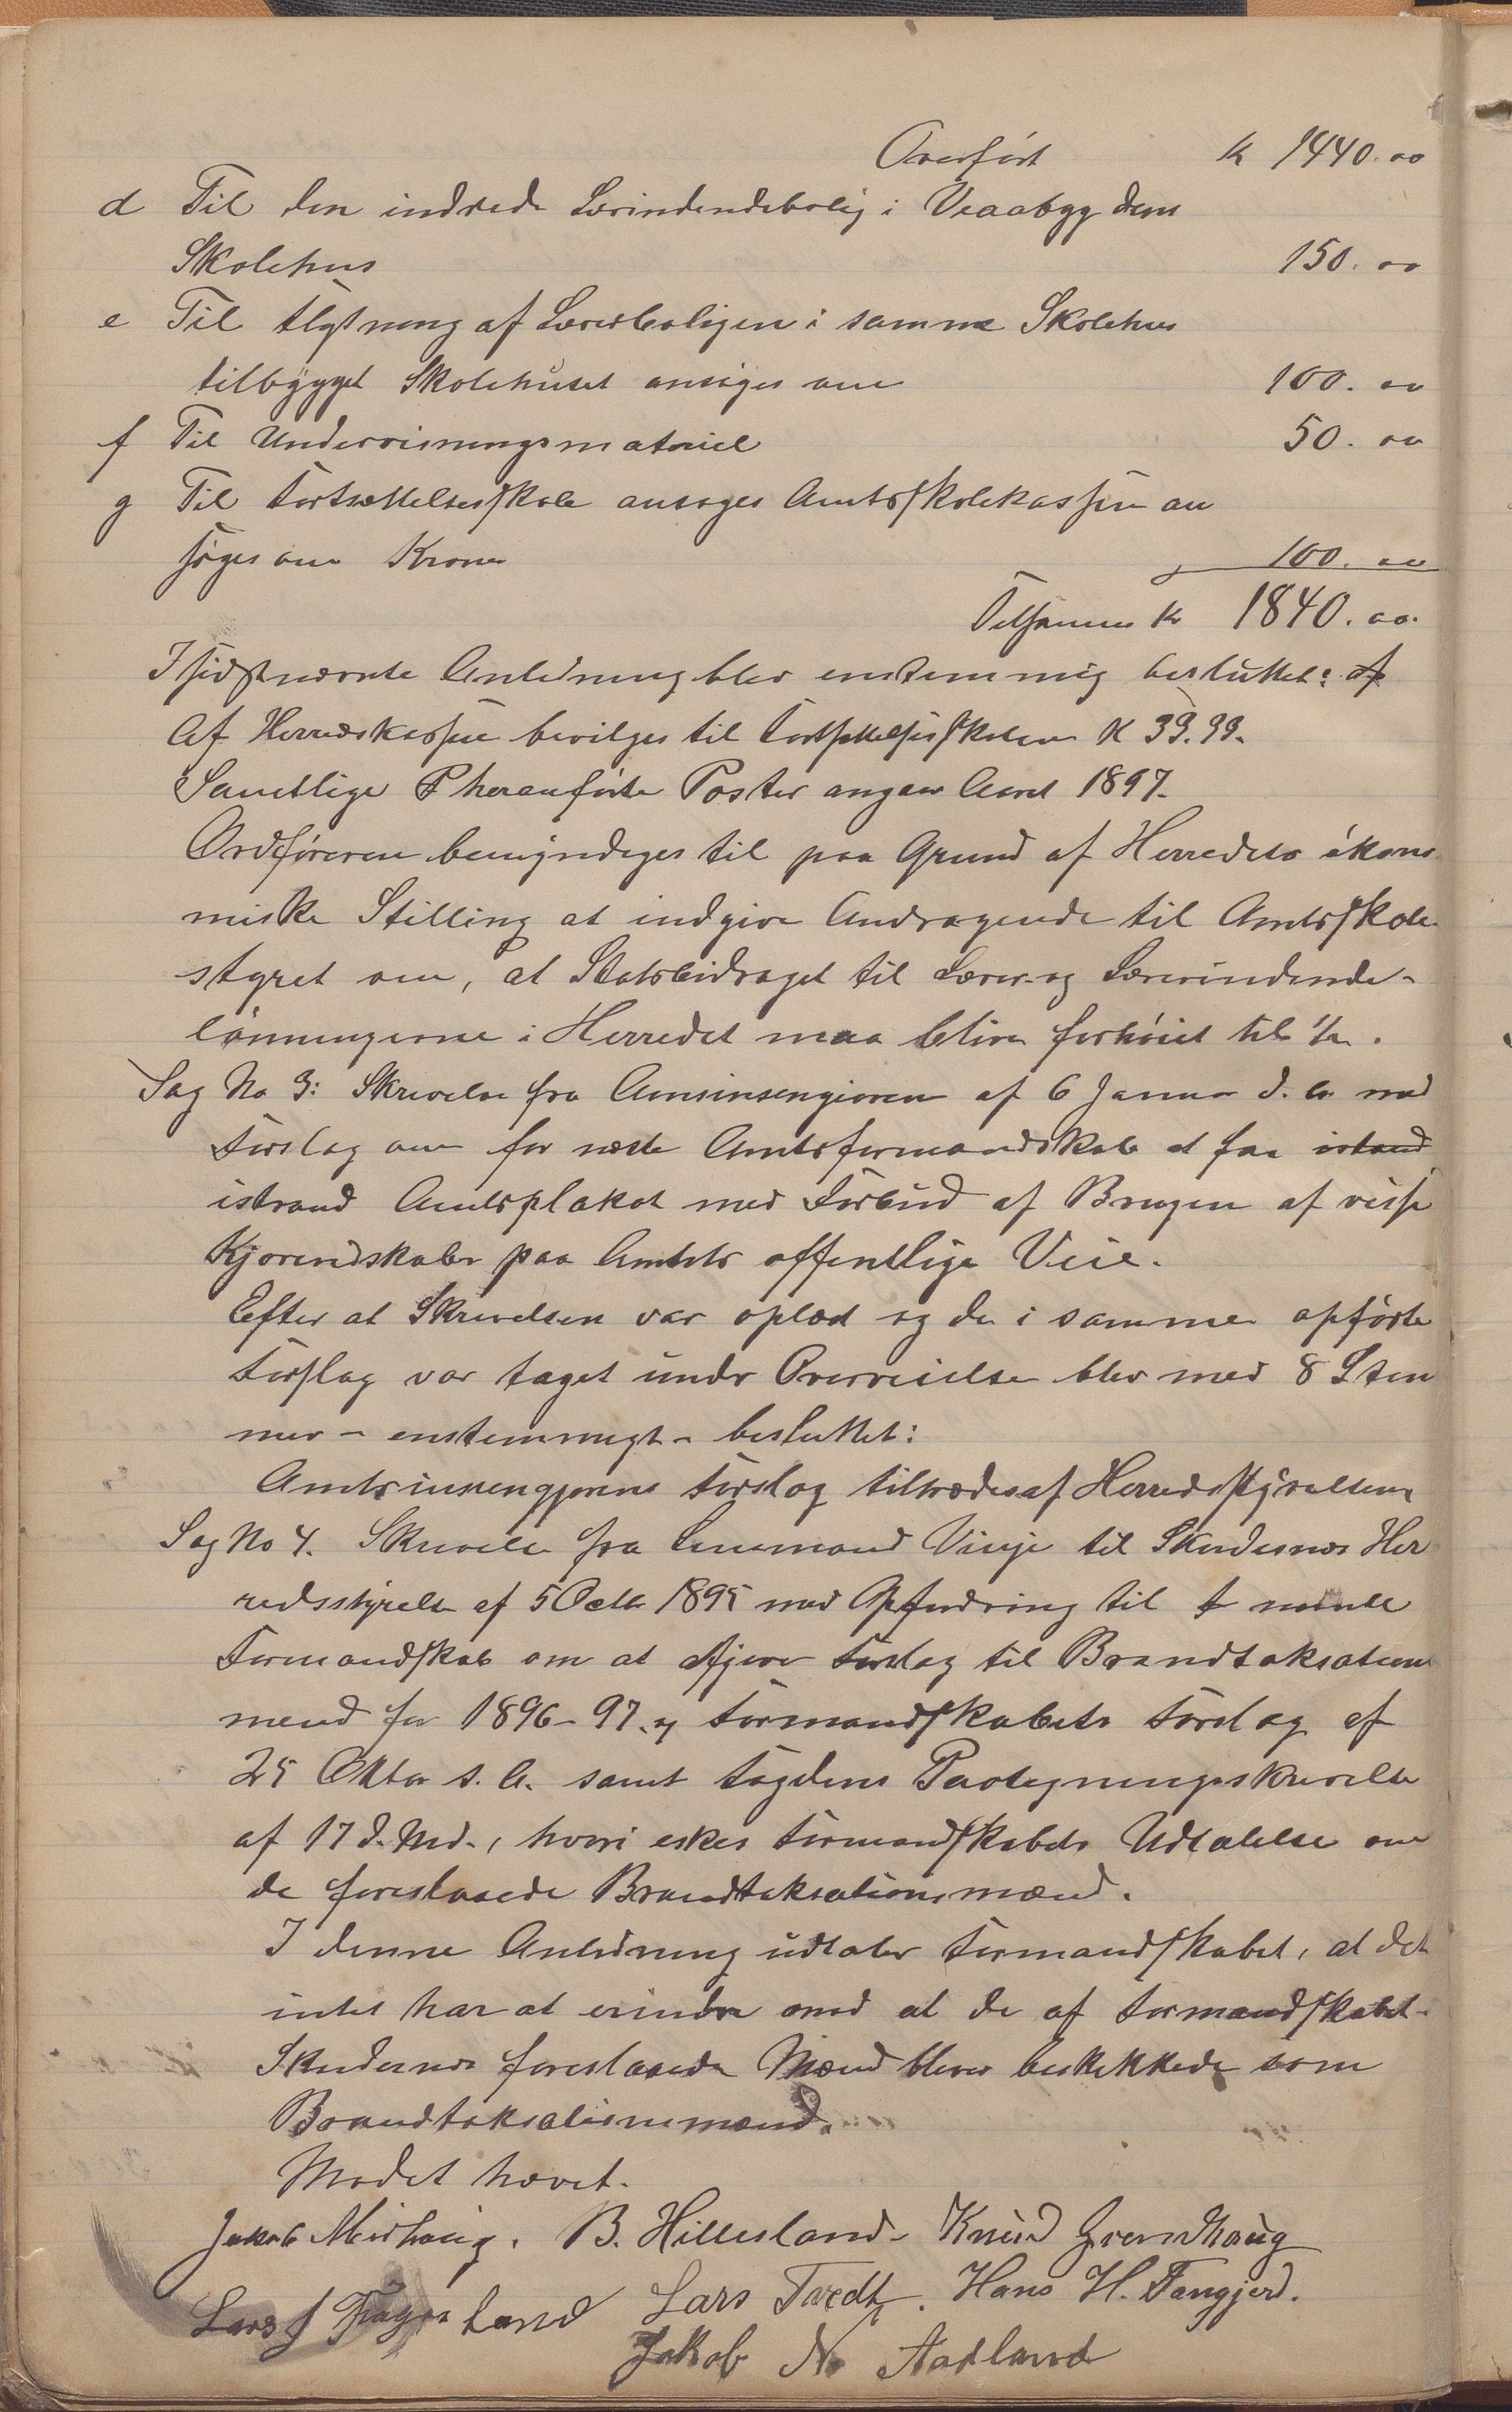 Overført K 1440.00
d Til den indrede Lærindendebolig i Veaabygdens
Skolehus 150.00
e Til Utgtning af Lærerboligen i samme Skolehus
tilbygget Skolehuset ansøges om 100.00
f Til Undervisningsmateriel 50.00
g Til Fortsættelsesskole ansøges Amtsskolekassen an
søges om Kroner 100.00
Tilsammen Kr 1840.00.
I sidstnævnte Anledning blev enstemmig besluttet: af
Af Herredskassen bevilges til Fortsættelsesskolen K 33.33.
Samtlige P heranførte Poster angaar Aaret 1897.
Ordføreren bemyndiges til paa Grund af Herredets økono
miske Stilling at indgive Andragende til Amtsskole-
styret om, at Statsbidraget til Lærer- og Lærerindende-
lønningerne i Herredet maa blive forhøiet til 1/2.
Sag No 3: Skrivelse fra Amsinsengiøren af 6 Januar d. A. med
Forslag om for næste Amtsformandskab at faa istand
istrand Amtsplakat med Forbud af Brugen af visse
Kjøreredskaber paa Amtets offentlige Veie.
Efter at Skrivelsen var oplæst og de i samme opførte
Forslag var taget under Overveielse blev med 8 Stem
mer - enstemmigt - besluttet:
Amtsinsengjørens Forslag tiltrædes af Herredsstyrelsen
Sag No 4. Skrivelse fra Lensmand Vinje til Skudesnes Her
redsstyrelse af 5 Octb 1895 med Opfordring til
Formandskab om at afgive Forslag til Brandtaksations
mænd for 1896-97 og Formandskabets Forslag af
25 Oktbr s. A. samt Fogdens Paategningsskrivelse
af 17 d. Md., hvori eskes Formandskabets Udtalelse om
de foreslaaede Brandtaksationsmænd.
I denne Anledning udtaler Formandskabet, at det
intet har at erindre mod at de af Formandskabet
Skudesnes foreslaaede Mænd bliver beskikkede som
Brandtaksationsmænd.
Mødet hævet.
Jakob Midhaug. B. Hillesland Knud Grendhaug
Lars J Fagerland Lars Tvedt. Hans H. Fangjerd.
Jakob N. Aadland